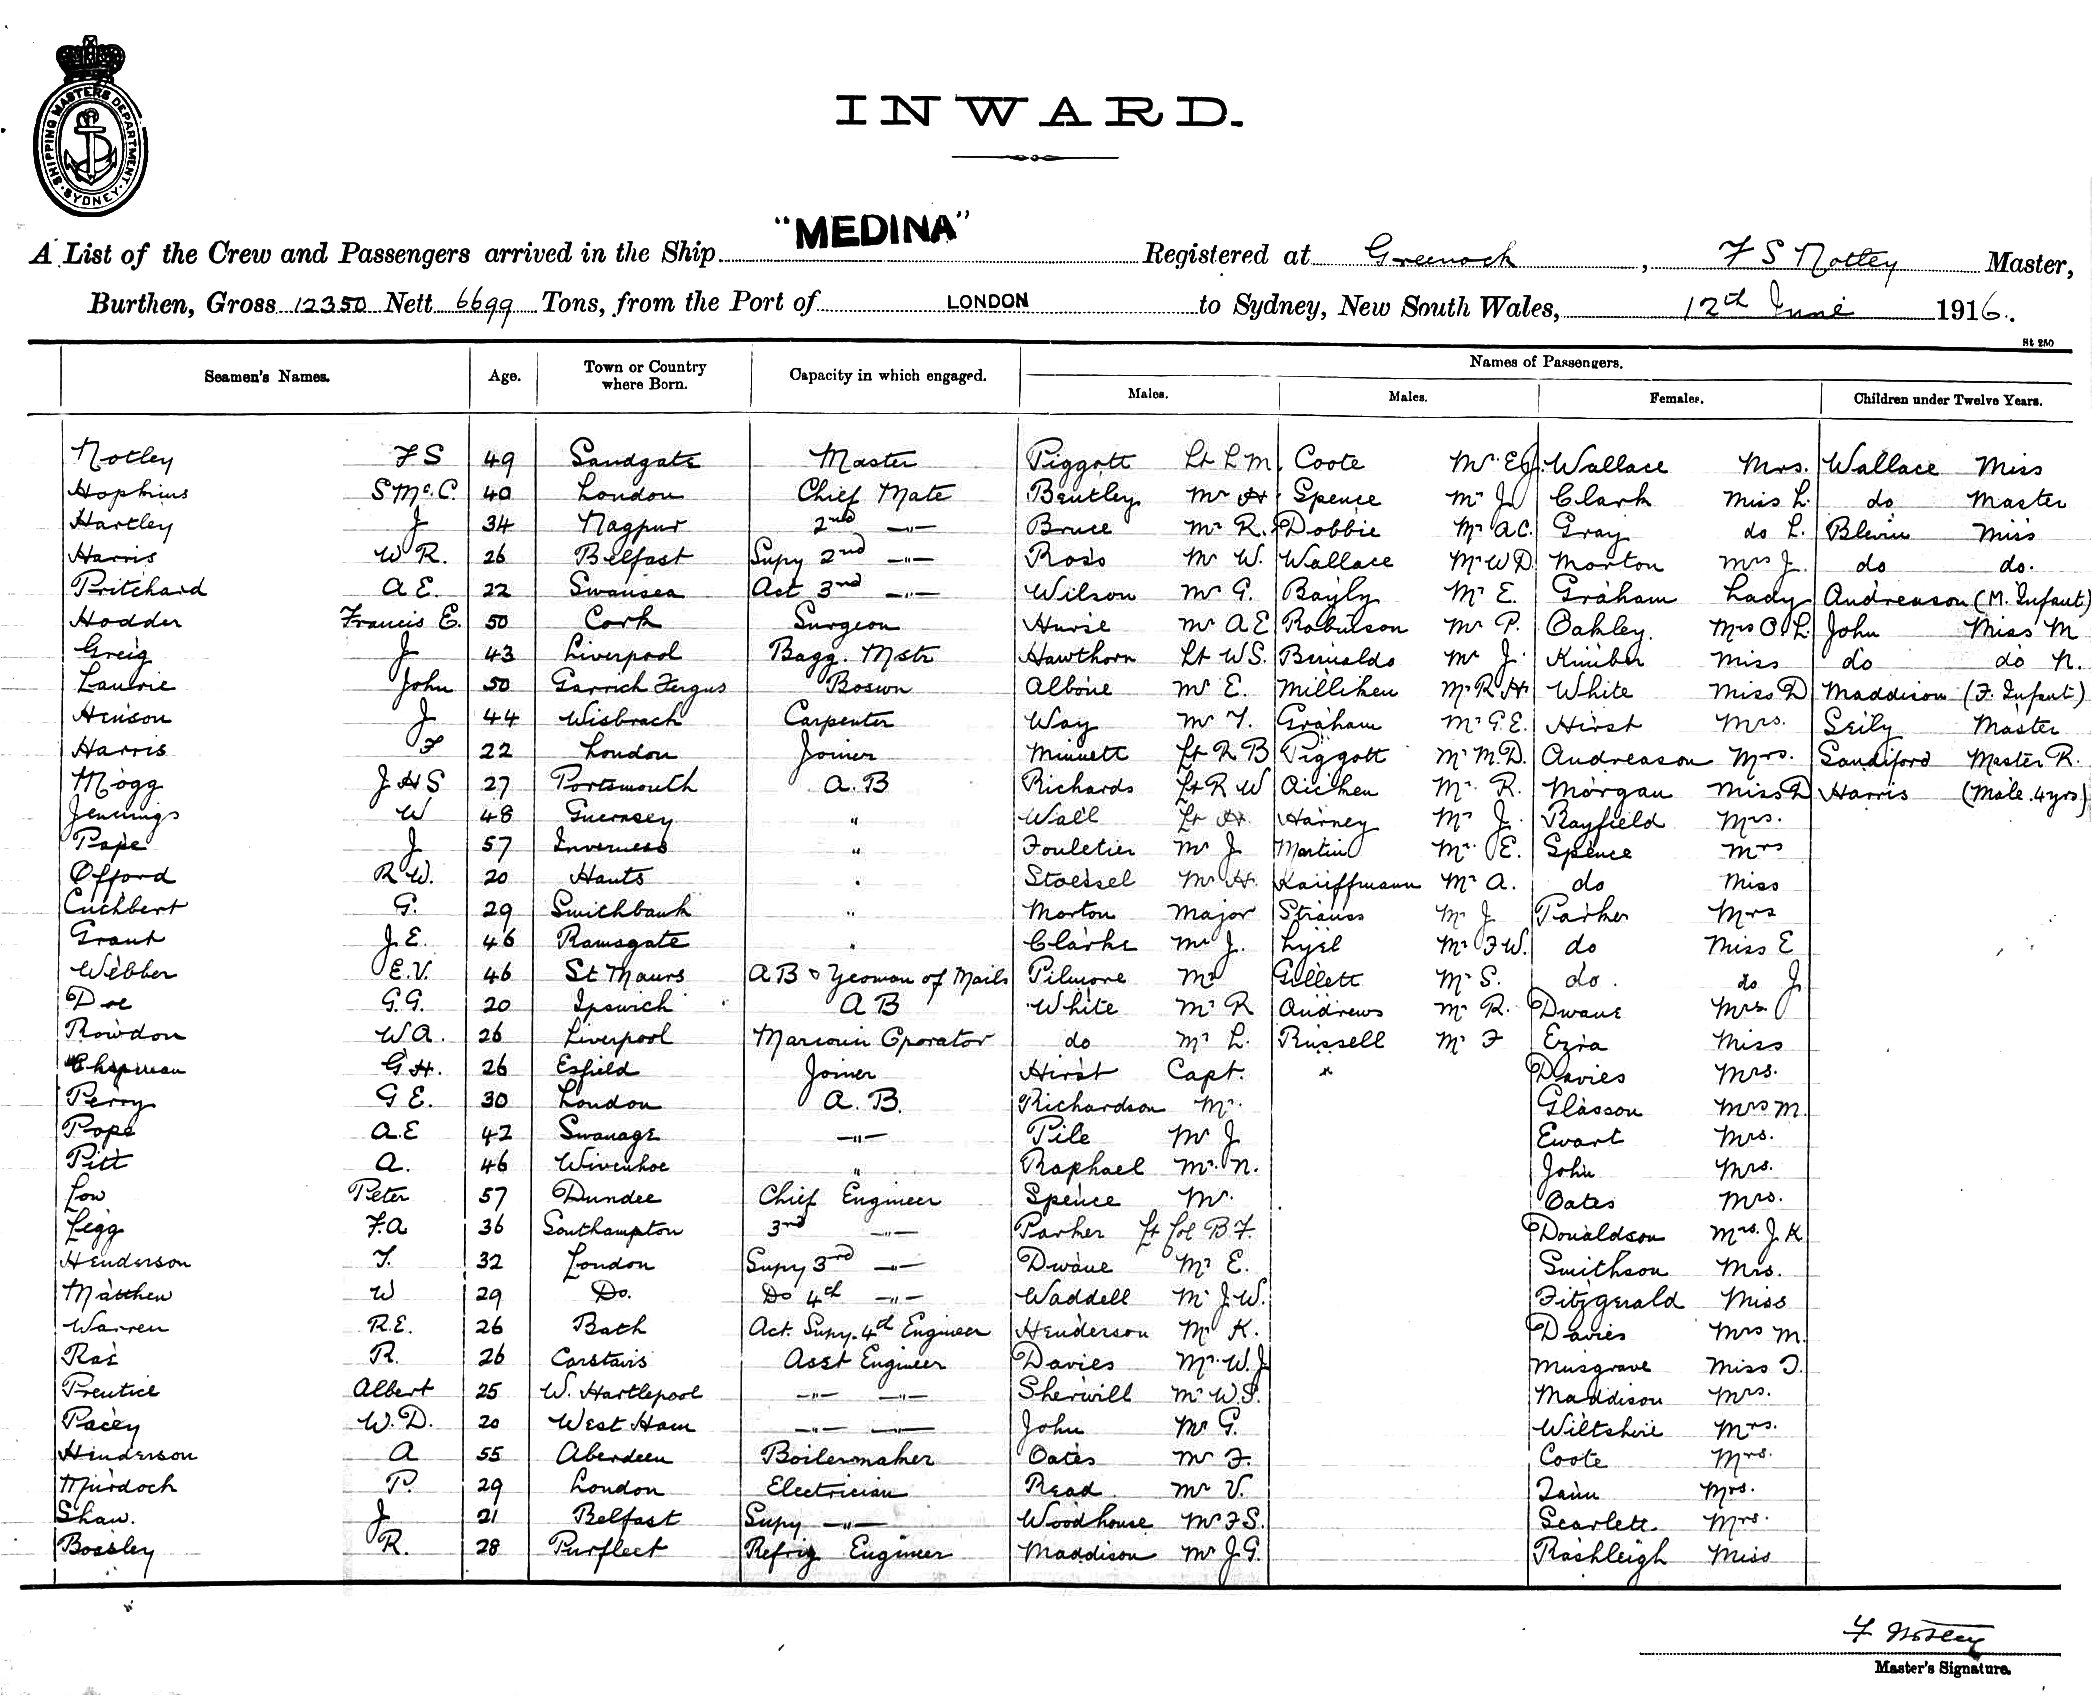 SHIPPING MASTERS DEPARTMENT SYDNEY
INWARD.
A List of the Crew and Passengers arrived in the Ship "MEDINA" Registered at Greenock, F S Notley Master,
Burthen, Gross 12350 Nett 6699 Tons, from the Port of LONDON to Sydney, New South Wales, 12th June 1916.
St 250
Seamen's Names. Age. Town or Country where Born. Capacity in which engaged. Names of Passengers.
Males. Males. Females. Children under Twelve Years.
Notley F S 49 Sandgate Master Piggott Lt L M Coote Mr E G. Wallace Mrs. Wallace Miss
Hopkins S Mc. C. 40 London Chief Mate Bentley Mr H Spence Mr J Clark Miss L. do Master
Hartley J 34 Nagpur 2nd -"- Bruce Mr R. Dobbie Mr A C. Gray do L. Blevin Miss
Harris W R. 26 Belfast Supy 2nd -"- Ross Mr W. Wallace Mr W D Morton Mrs J. do do.
Pritchard A E. 22 Swansea Act 3rd -"- Wilson Mr G. Bayly Mr E. Graham Lady Andreason (M. Infant)
Hodder Francis E. 50 Cork Surgeon Hurse Mr A E Robinson Mr P. Oakley Mrs O. L. John Miss M
Greig J 43 Liverpool Bagg. Mstr Hawthorn Lt W S. Mr J. Kimber Miss do do N.
Laurie John 50 Garrick Fergus Boswn Albone Mr E. Milliken Mr R H White Miss D Maddison (F. Infant)
Henson J 44 Wisbrach Carpenter Way Mr T. Graham Mr G. E. Hirst Mrs. Seily Master
Harris F 22 London Joiner Minnett Lt R B Piggott Mr M. D. Andreason Mrs. Sandiford Master R.
Mogg J H S 27 Portsmouth A. B Richards Lt R W Aicken Mr R. Morgan Miss D Harris (Male. 4yrs)
Jennings W 48 Guernsey " Wall Lt H. Harney Mr J. Rayfield Mrs.
Pape J 57 Inverness " Fouletier Mr J Martin Mr E. Spence Mrs
Offord R W. 20 Hants " Stoessel Mr H. Kauffmann Mr A. do Miss
Cuthbert G. 29 Smithbank " Morton Major Strauss Mr J Parker Mrs
Grant J. E. 46 Ramsgate " Clarke Mr J. Lyel Mr F W. do Miss E
Webber E. V. 46 St Maurs A B & Yeoman of Mails Pilmore Mr Gillett Mr S. do. do J
Doe G. G. 20 Ipswich A B White Mr R Andrews Mr R. Dwane Mrs
Rowdon W A. 26 Liverpool Marconi Operator do Mr L. Russell Mr F Ezra Miss
Chapman G H. 26 Esfield Joiner Hirst Capt. Davies Mrs.
Perry G E. 30 London A. B. Richardson Mr. Glasson Mrs M.
Pope A. E 42 Swanage -"- Pile Mr J Ewart Mrs.
Pitt A. 46 Wivenhoe " Raphael Mr. N. John Mrs.
Low Peter 57 Dundee Chief Engineer Spence Mr. Oates Mrs.
Legg F. A 36 Southampton 3rd -"- Parker Lt Col B. F. Donaldson Mrs. J. K
Henderson T. 32 London Supy 3rd -"- Dwane Mr E. Smithson Mrs.
Matthew W 29 Do. Do 4th -"- Waddell Mr J. W. Fitzgerald Miss
Warren R. E. 26 Bath Act. Supy. 4th Engineer Henderson Mr K. Davies Mrs M.
Rae R. 26 Carstairs Asst Engineer Davies Mr. W. J Musgrave Miss I.
Prentice Albert 25 W. Hartlepool -"- -"- Sherwill Mr W. S. Maddison Mrs.
Pacey W. D. 20 West Ham -"- -"- John Mr G. Wiltshire Mrs.
Henderson A 55 Aberdeen Boilermaker Oates Mr F. Coote Mrs.
Murdoch P. 29 London Electrician Read Mr V. Mrs.
Shaw. J 21 Belfast Supy -"- Woodhouse Mr F S. Scarlett Mrs.
Bossley R. 28 Purfleet Refrig Engineer Maddison Mr J. G. Rashleigh Miss
F Notley
Master's Signature.